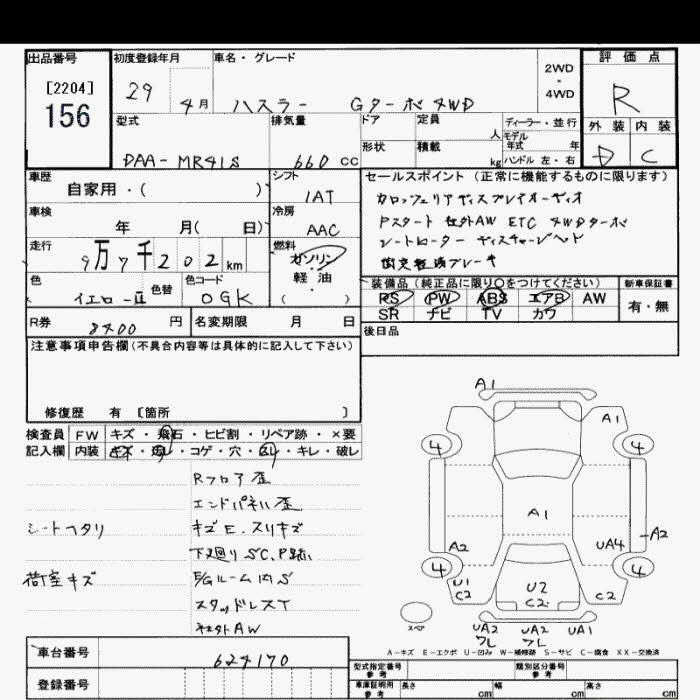 出品番号
[2204]
156
初度登録年月
29 4月
車名・グレード
ハスラー Gターボ 4WD
2WD
・
4WD
評価点
R
外装 内装
D C
型式
DAA-MR41S
排気量
660 cc
ドア
形状
定員
人
積載
kg
ディーラー・並行
モデル
年式 年
ハンドル 左・右
車歴
自家用・( )
シフト
IAT
車検
年 月( 日)
冷房
AAC
走行
9万7千202km
燃料
ガソリン
軽油
( )
色
イエローⅡ
色替
色コード
0GK
セールスポイント (正常に機能するものに限ります)
カロッツェリアディスプレイオーディオ
Pスタート 社外AW ETC 4WDターボ
シートヒーター ディスチャージヘッド
衝突軽減ブレーキ
装備品 (純正品に限り○をつけてください)
PS PW ABS エアB AW
SR ナビ TV カワ
新車保証書
有・無
R券 8400 円
名変期限 月 日
後日品
注意事項申告欄(不具合内容等は具体的に記入して下さい)
修復歴 有 [箇所 ]
検査員
記入欄
FW キズ・飛石・ヒビ割・リペア跡・×要
内装 キズ・・コゲ・穴・・キレ・破レ
Rフロア歪
エンドパネル歪
シートヘタリ
キズE.スリキズ
下廻りSC,P跡
荷室キズ
E/GルームSS
スタッドレスT
社外AW
A1
A1
4
4
A1
A2
A2
UA4
4
4
U1
C2
U2
C2
C2
スペア
UA2
フレ
UA2
フレ
UA1
A-キズ E-エクボ U-凹み W-補修跡 S-サビ C-腐食 XX-交換済
車台番号
624170
登録番号
型式指定番号
参考
類別区分番号
参考
車庫証明用
参考
長さ cm
幅 cm
高さ cm